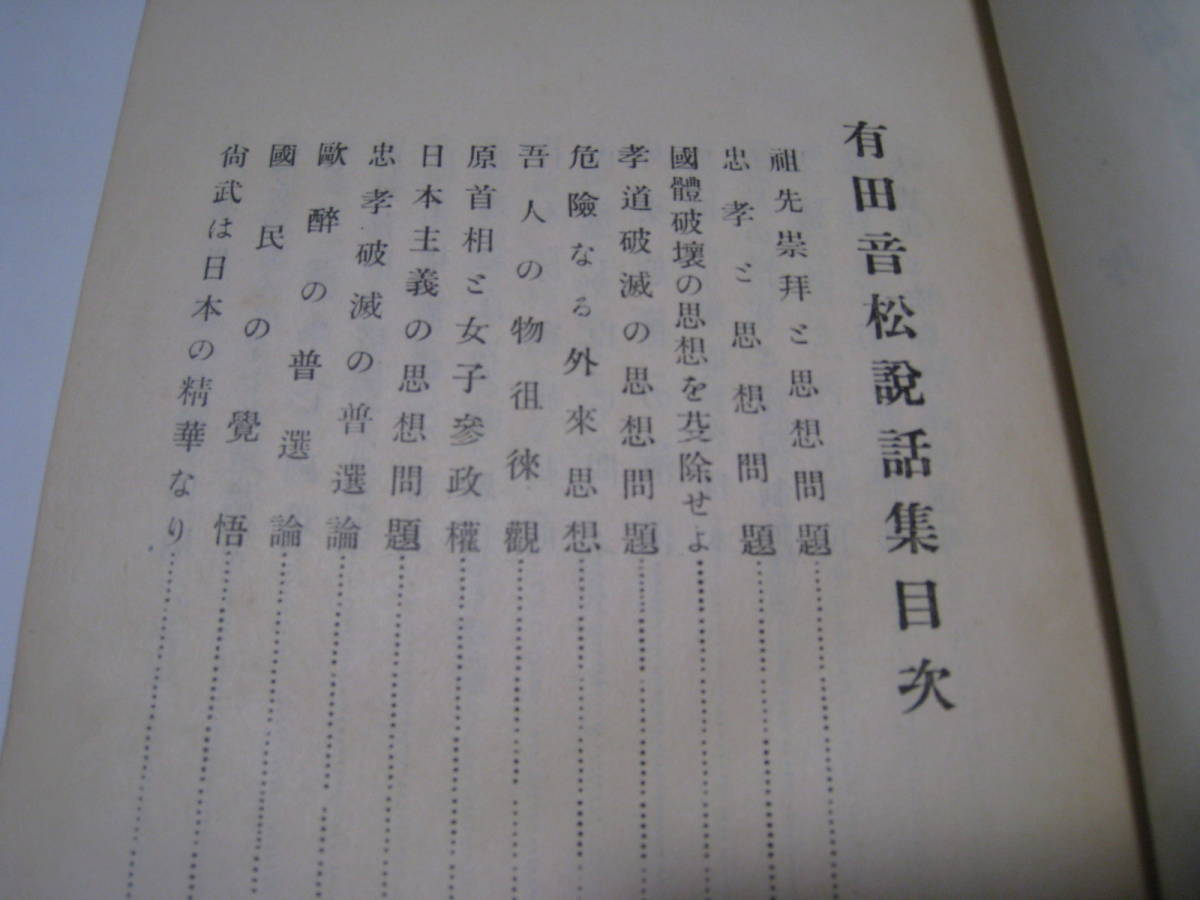 有田音松說話集目次
祖先崇拜と思想問題
忠孝と思想問題
國體破壞の思想を芟除せよ
孝道破滅の思想問題
危險なる外來思想
吾人の物徂徠觀
原首相と女子參政權
日本主義の思想問題
忠孝破滅の普選論
歐醉の普選論
國民の覺悟
尙武は日本の精華なり